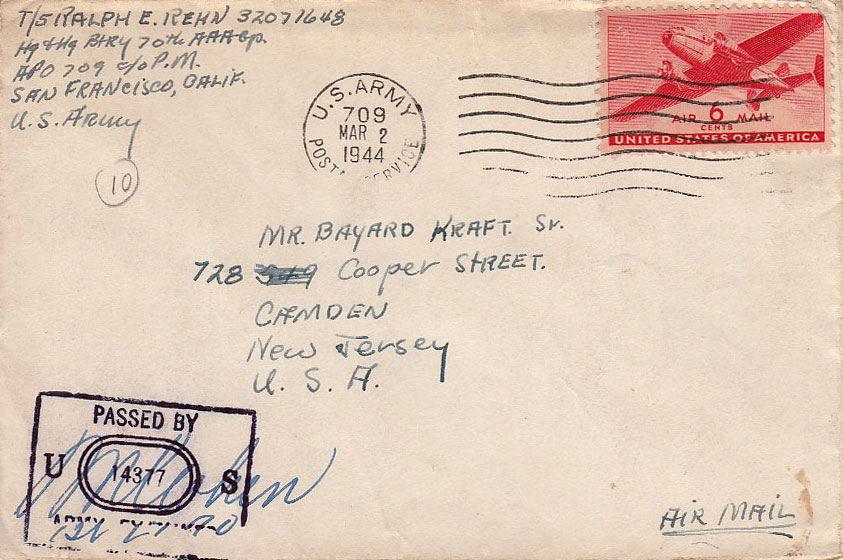 T/5 RALPH E. REHN 32071648
Hq & Hq Btry 70th AAA Gp.
APO 709 c/o P.M.
SAN FRANCISCO, CALIF.
U.S. Army
10
U.S. ARMY
709
MAR 2
1944
POSTAL SERVICE
AIR 6 MAIL
CENTS
UNITED STATES OF AMERICA
MR. BAYARD KRAFT Sr.
728 Cooper STREET.
CAMDEN
New Jersey
U. S. A.
PASSED BY
U 14377 S
ARMY EXAMINER
AIR MAIL